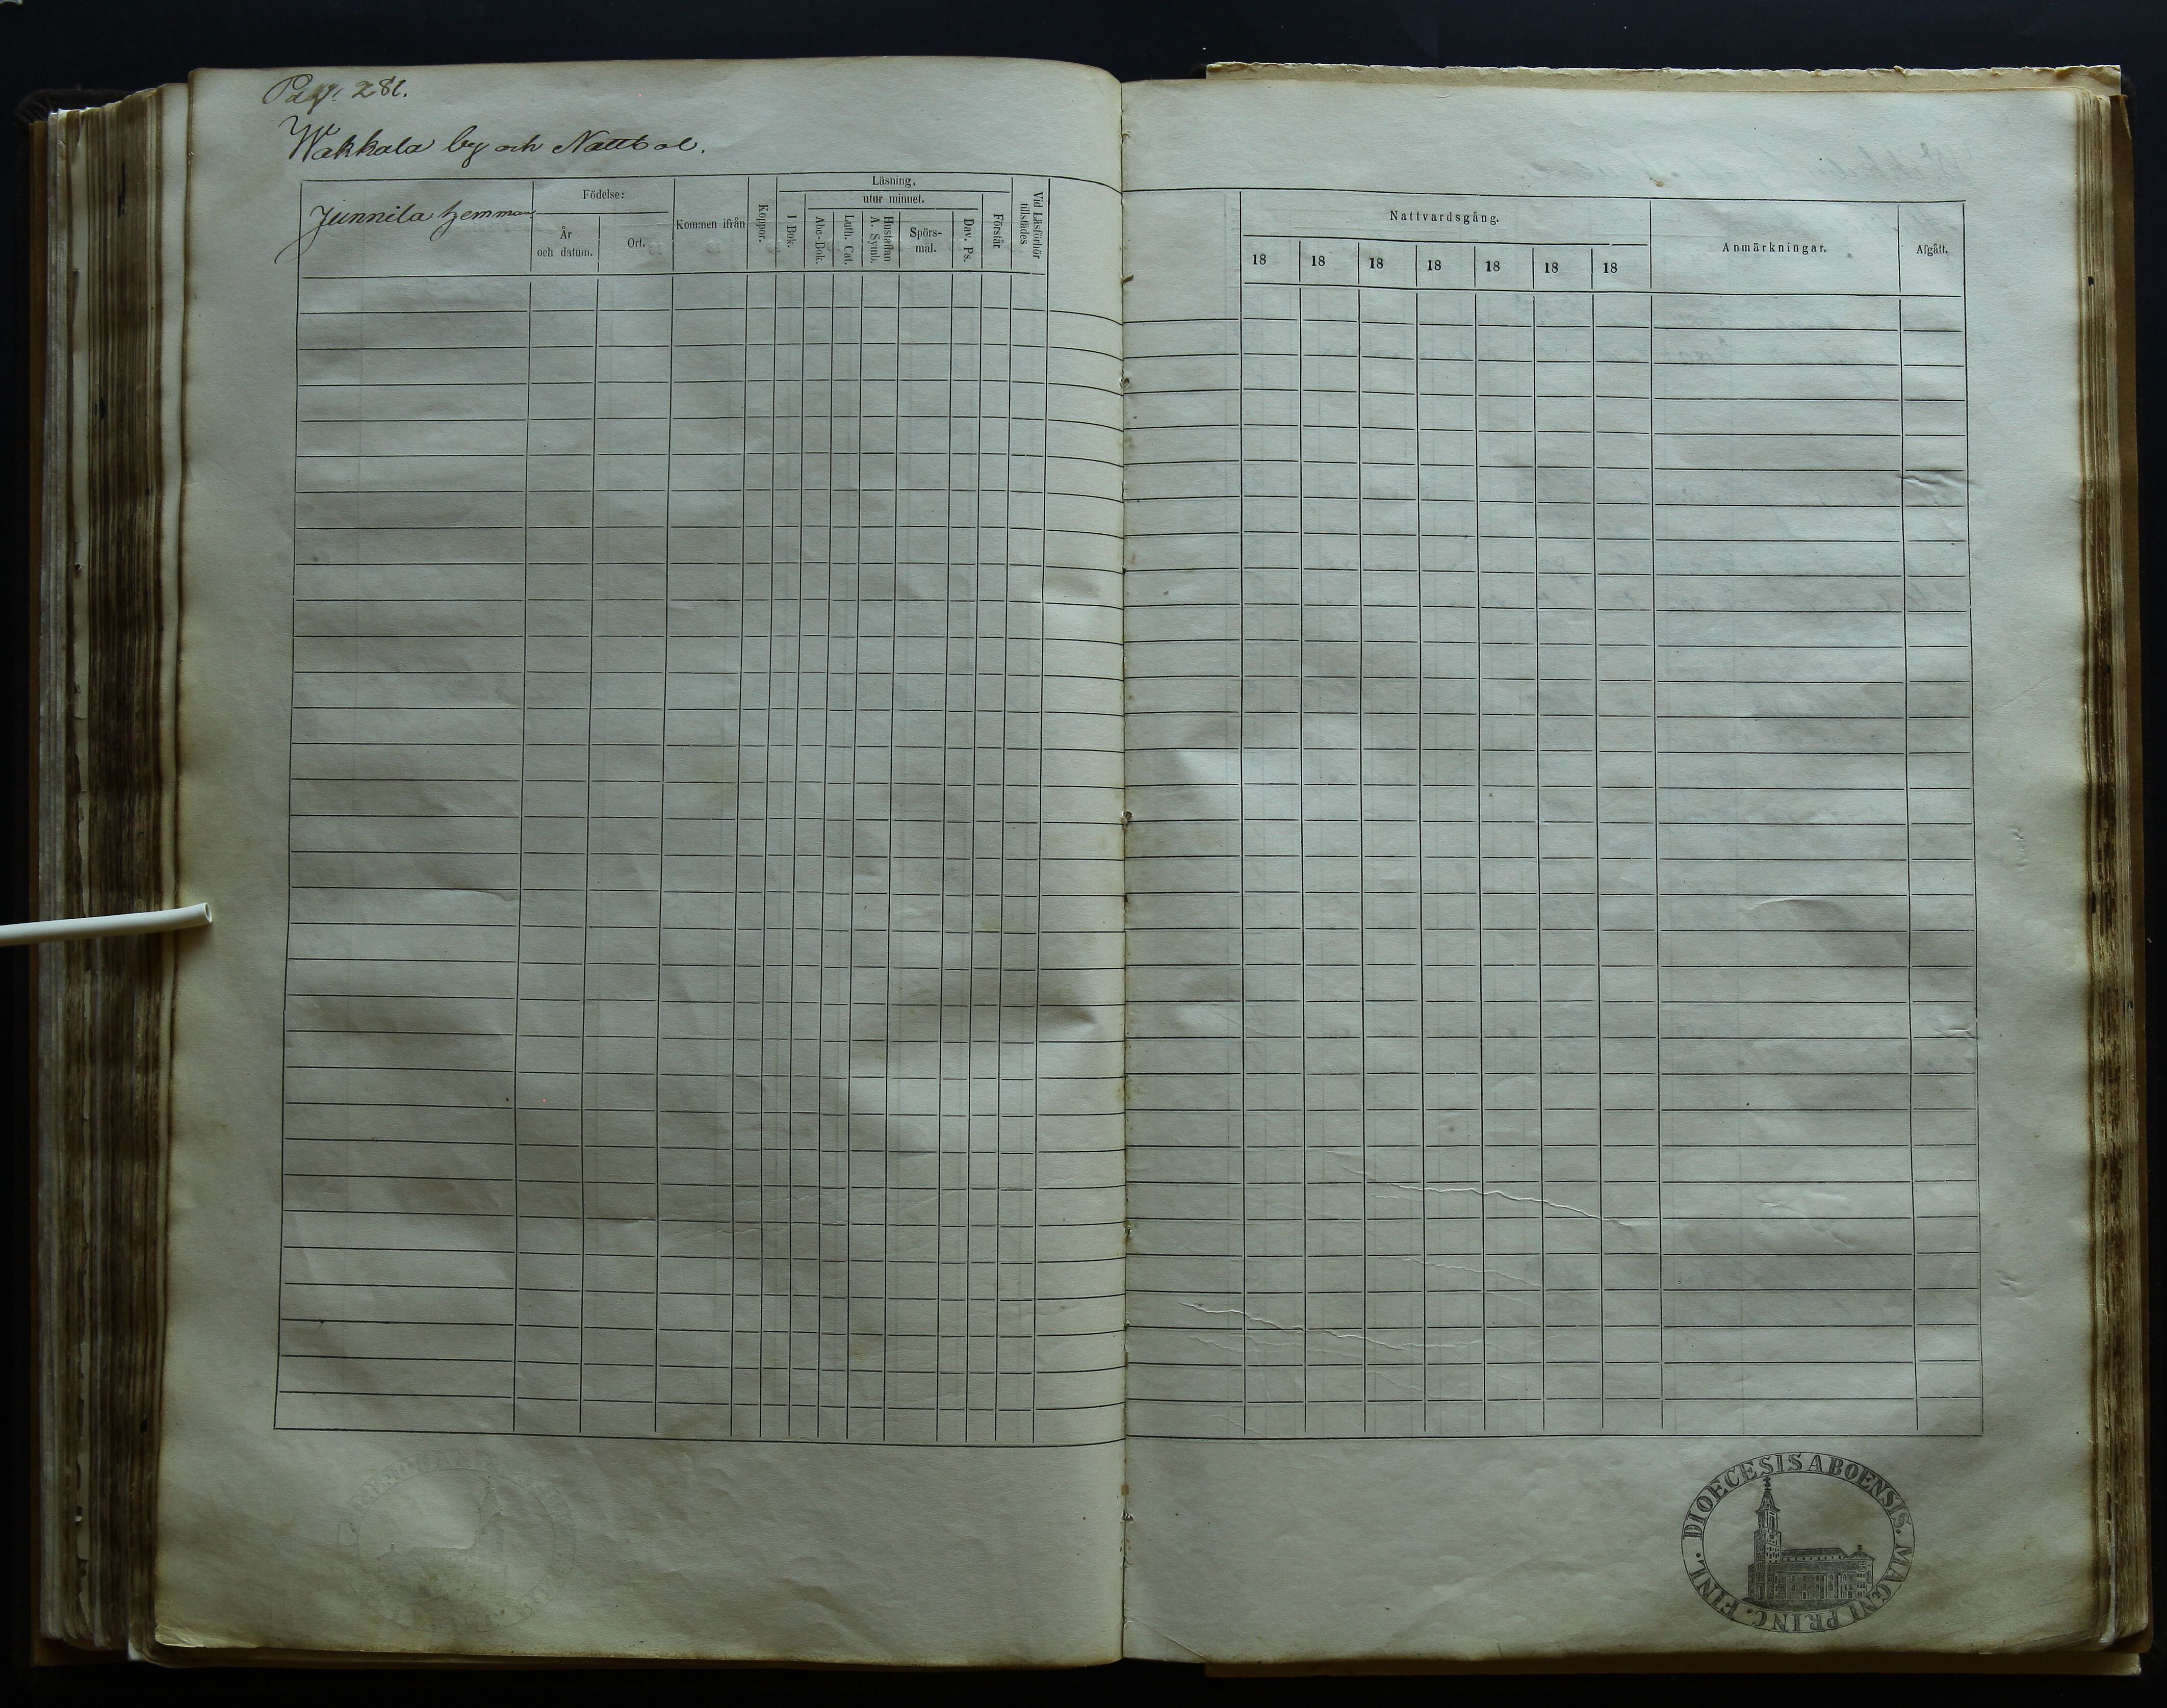 Pag. 281.
Wakkala by och Nattbol.
Junnila hemman
Födelse:
År
och datum.
Ort.
Kommen ifrån
Koppor.
Läsning,
I Bok.
utur minnet.
Abc-Bok.
Luth. Cat.
Hustaflan
A. Symb.
Spörs-
mål.
Dav. Ps.
Förstår
Vid Läsförhör
tillstädes
Nattvardsgång.
18 18 18 18 18 18 18
Anmärkningar.
Afgått.
DIOECESIS ABOENSIS. MAGNI PRINC. FINL.